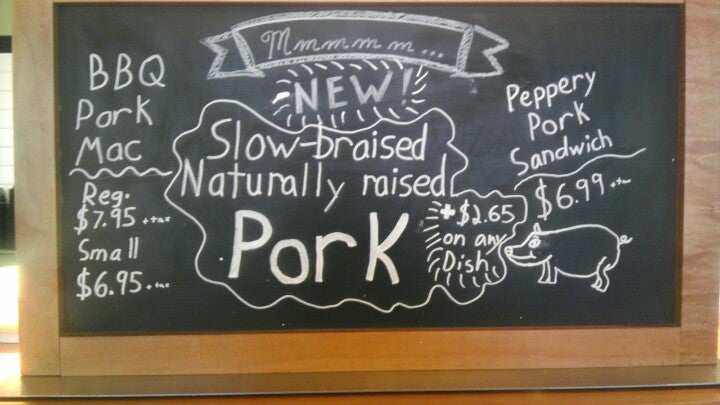 Mmmmm...
NEW!
BBQ
Pork
Mac
Reg.
$7.95 + tax
Small
$6.95 + tax
Slow-braised
Naturally raised
Pork
+ $2.65
on any
Dish
Peppery
Pork
Sandwich
$6.99 + tax